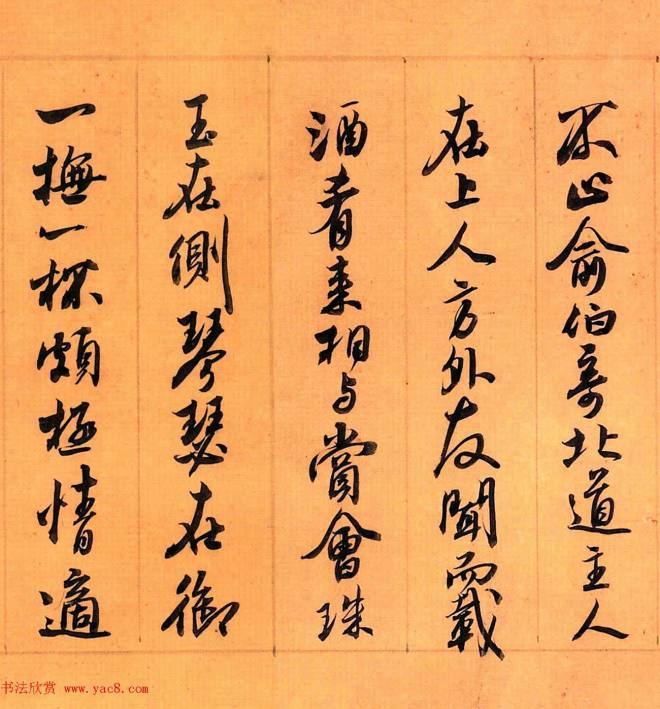 不止俞伯奇北道主人
在上人方外友闻而载
酒肴来相与賞會珠
玉在側琴瑟在御
一撫一杯頗極情適
书法欣赏 www.yac8.com